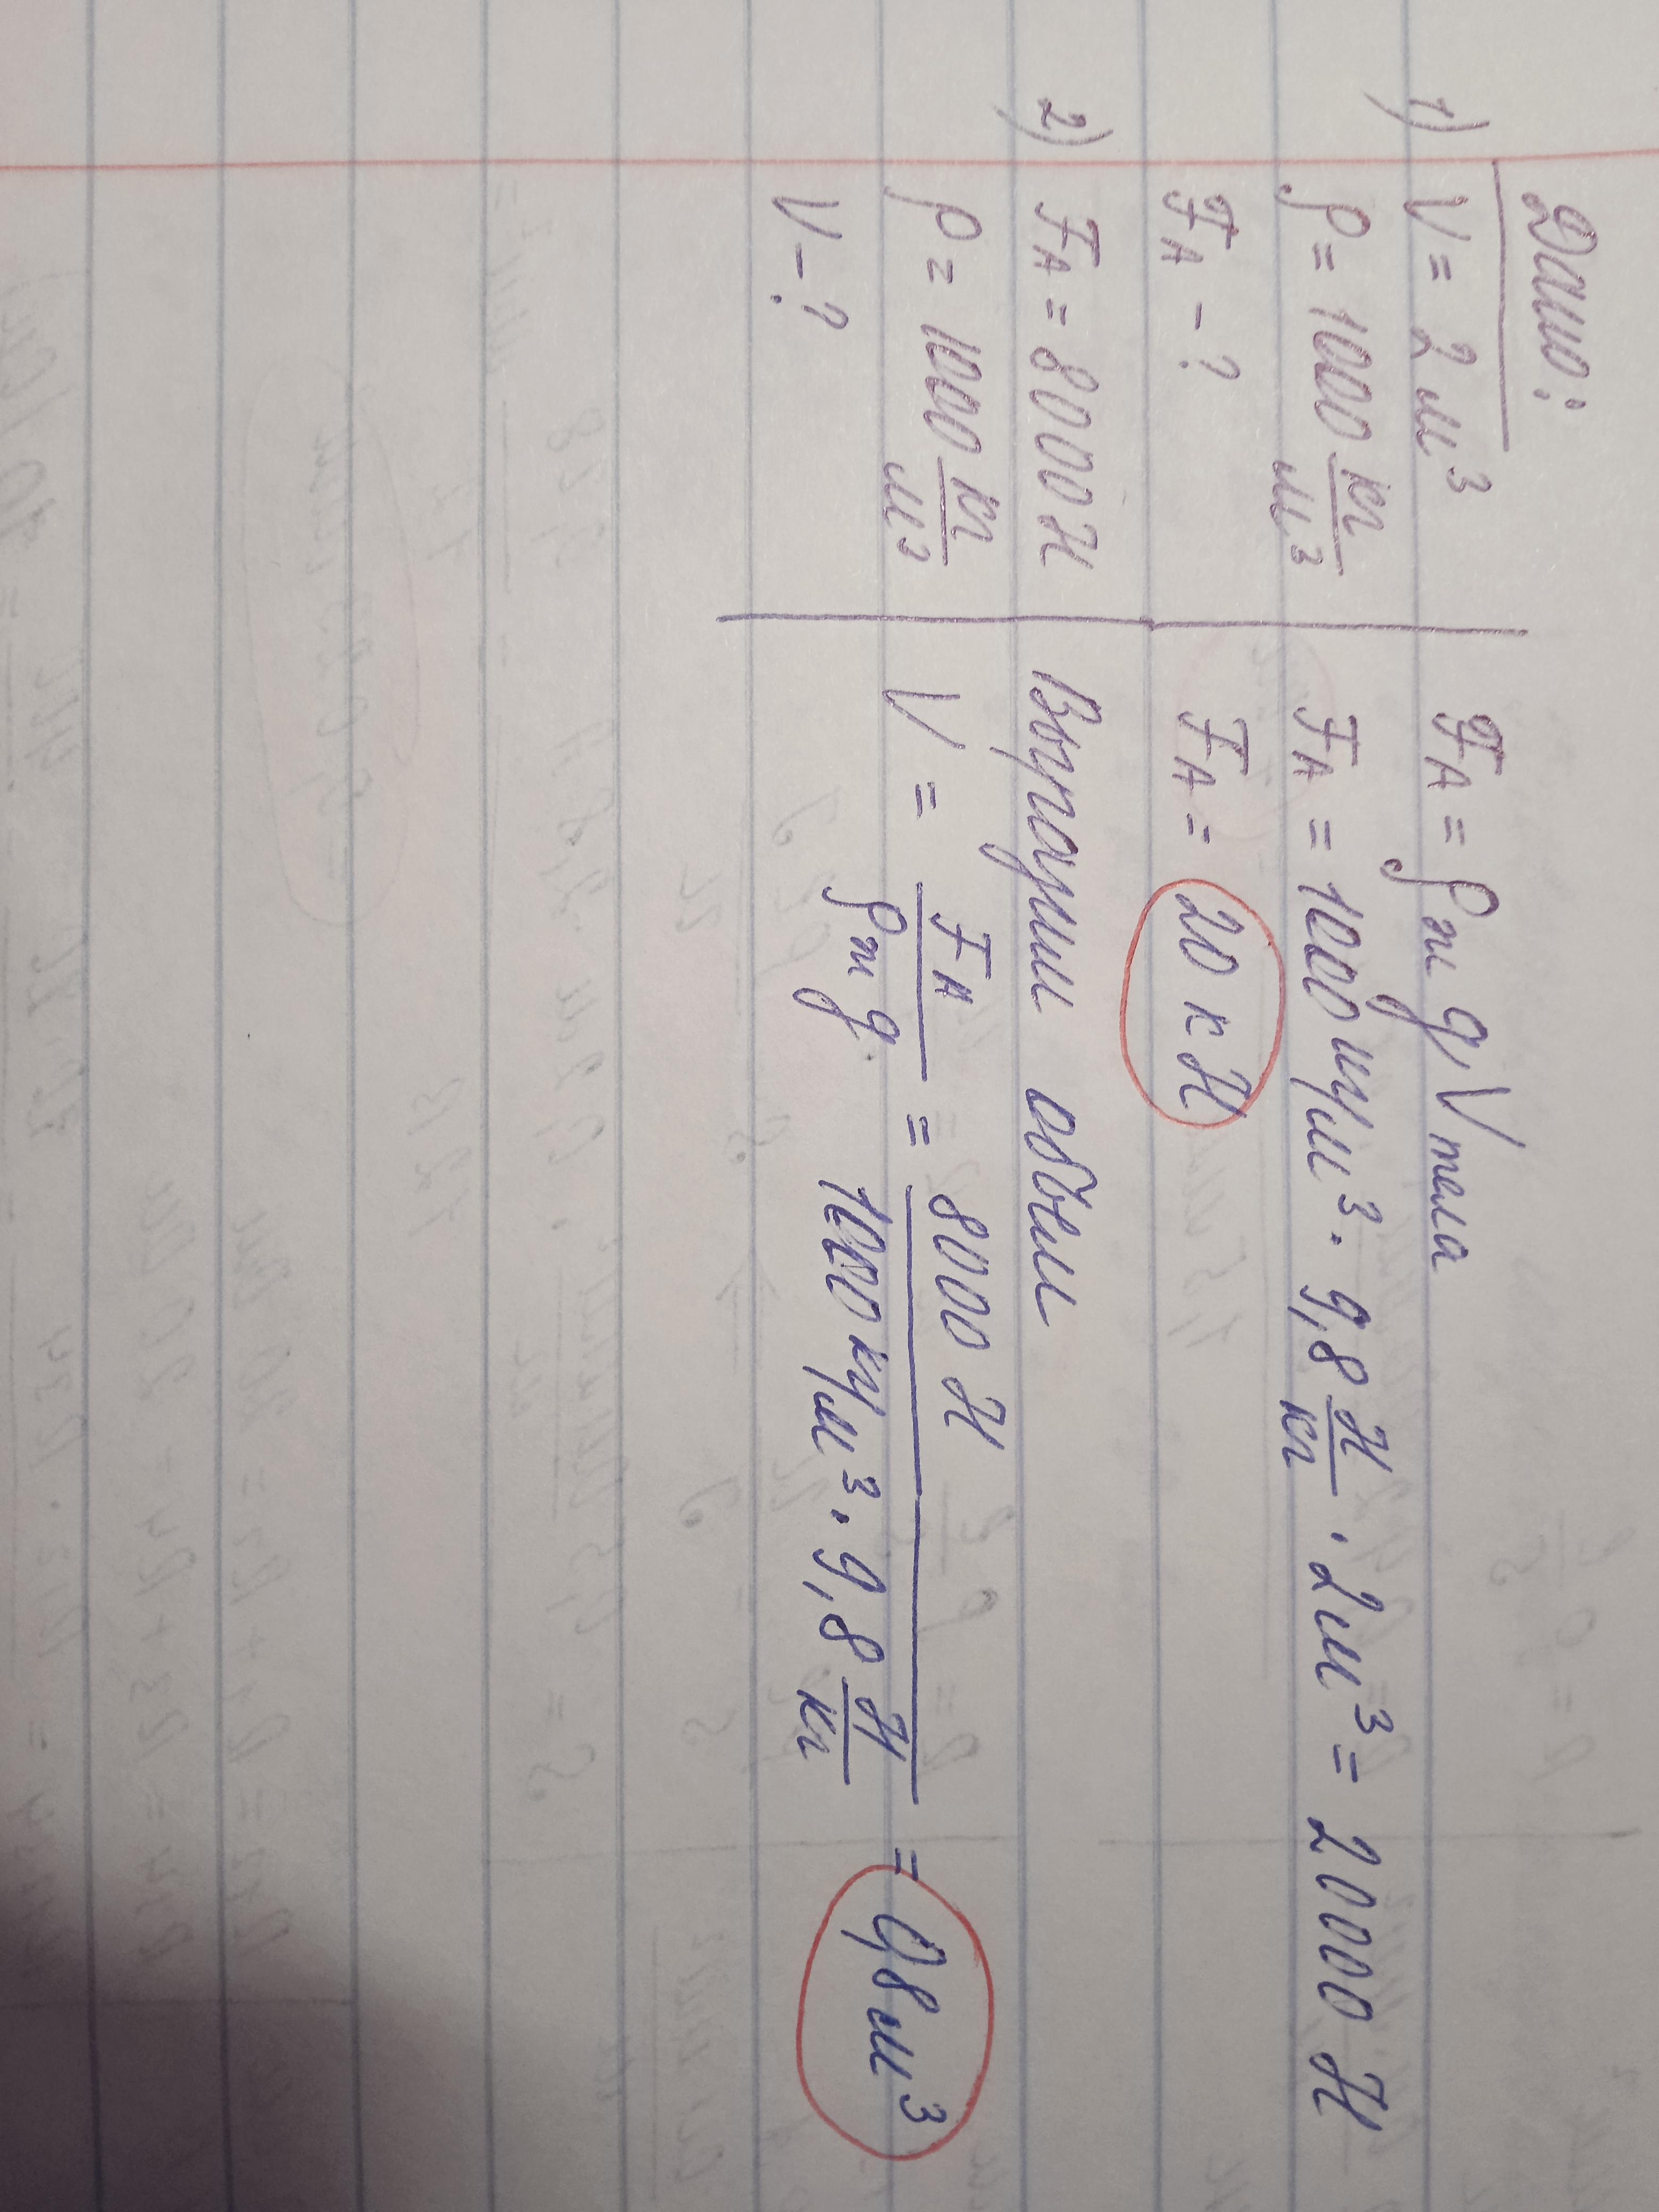 Дано:
1) V = 2 м³
ρ = 1000 кг/м³
F_A - ?
F_A = ρж g V тела
F_A = 1000 кг/м³ · 9,8 Н/кг · 2м³ = 20000 Н
F_A = 20 кН
2) F_A = 8000 Н
ρ = 1000 кг/м³
V - ?
Выразим объем
V = F_A / ρж g = 8000 Н / 1000 кг/м³ · 9,8 Н/кг = 0,8 м³